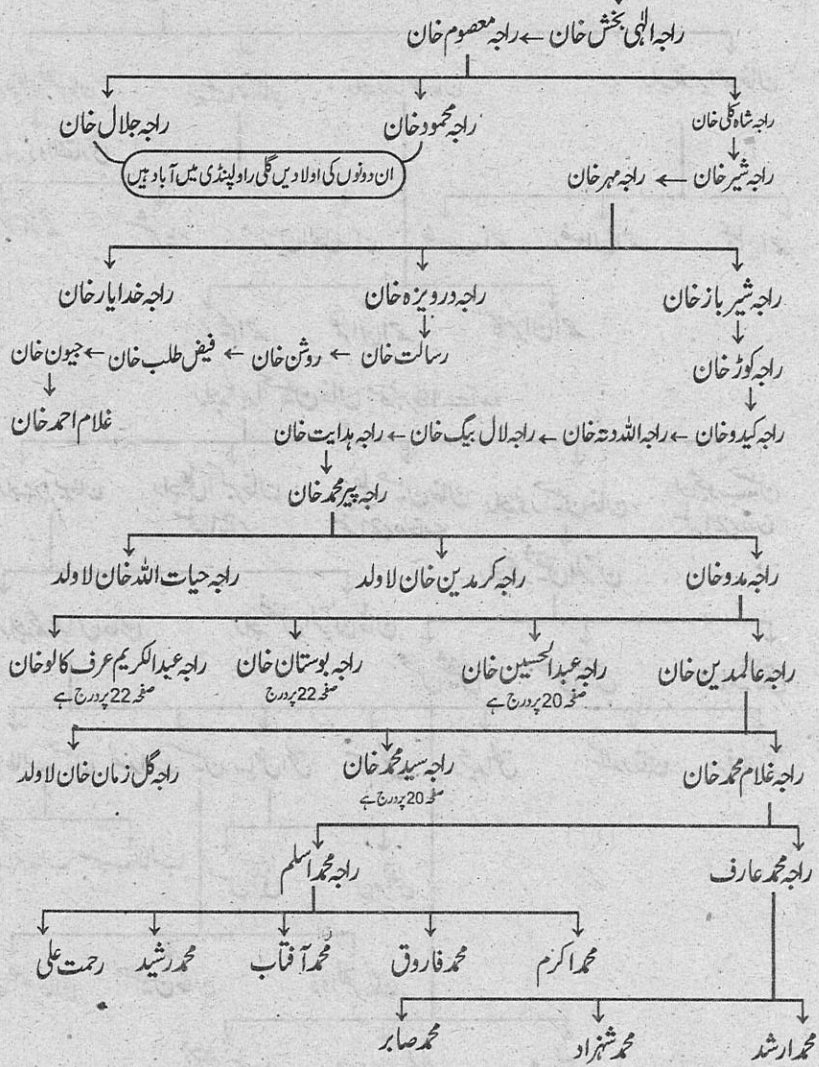 راجہ الٰہی بخش خان ← راجہ معصوم خان
راجہ شاہ کلی خان
راجہ محمود خان
راجہ جلال خان
ان دونوں کی اولادیں گلی راولپنڈی میں آباد ہیں
راجہ شیر خان ← راجہ مہر خان
راجہ شیر باز خان
راجہ درویزہ خان
راجہ خدا یار خان
راجہ کوڑ خان
رسالت خان ← روشن خان ← فیض طلب خان ← جیون خان
غلام احمد خان
راجہ کیدو خان ← راجہ اللہ دتہ خان ← راجہ لال بیگ خان ← راجہ ہدایت خان
راجہ پیر محمد خان
راجہ مدو خان
راجہ کرمدین خان لاولد
راجہ حیات اللہ خان لاولد
راجہ عالمدین خان
راجہ عبدالحسین خان
صفحہ 20 پر درج ہے
راجہ بوستان خان
صفحہ 22 پر درج
راجہ عبدالکریم عرف کالو خان
صفحہ 22 پر درج ہے
راجہ غلام محمد خان
راجہ سید محمد خان
صفحہ 20 پر درج ہے
راجہ گل زمان خان لاولد
راجہ محمد عارف
راجہ محمد اسلم
محمد اکرم
محمد فاروق
محمد آفتاب
محمد رشید
رحمت علی
محمد ارشد
محمد شہزاد
محمد صابر